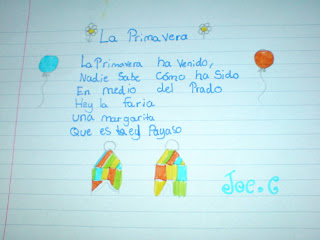 La Primavera
La Primavera ha Venido,
Nadie Sabe Cómo ha Sido
En medio del Prado
Hey la faria
una margarita
Que es el Payaso
Joe.C